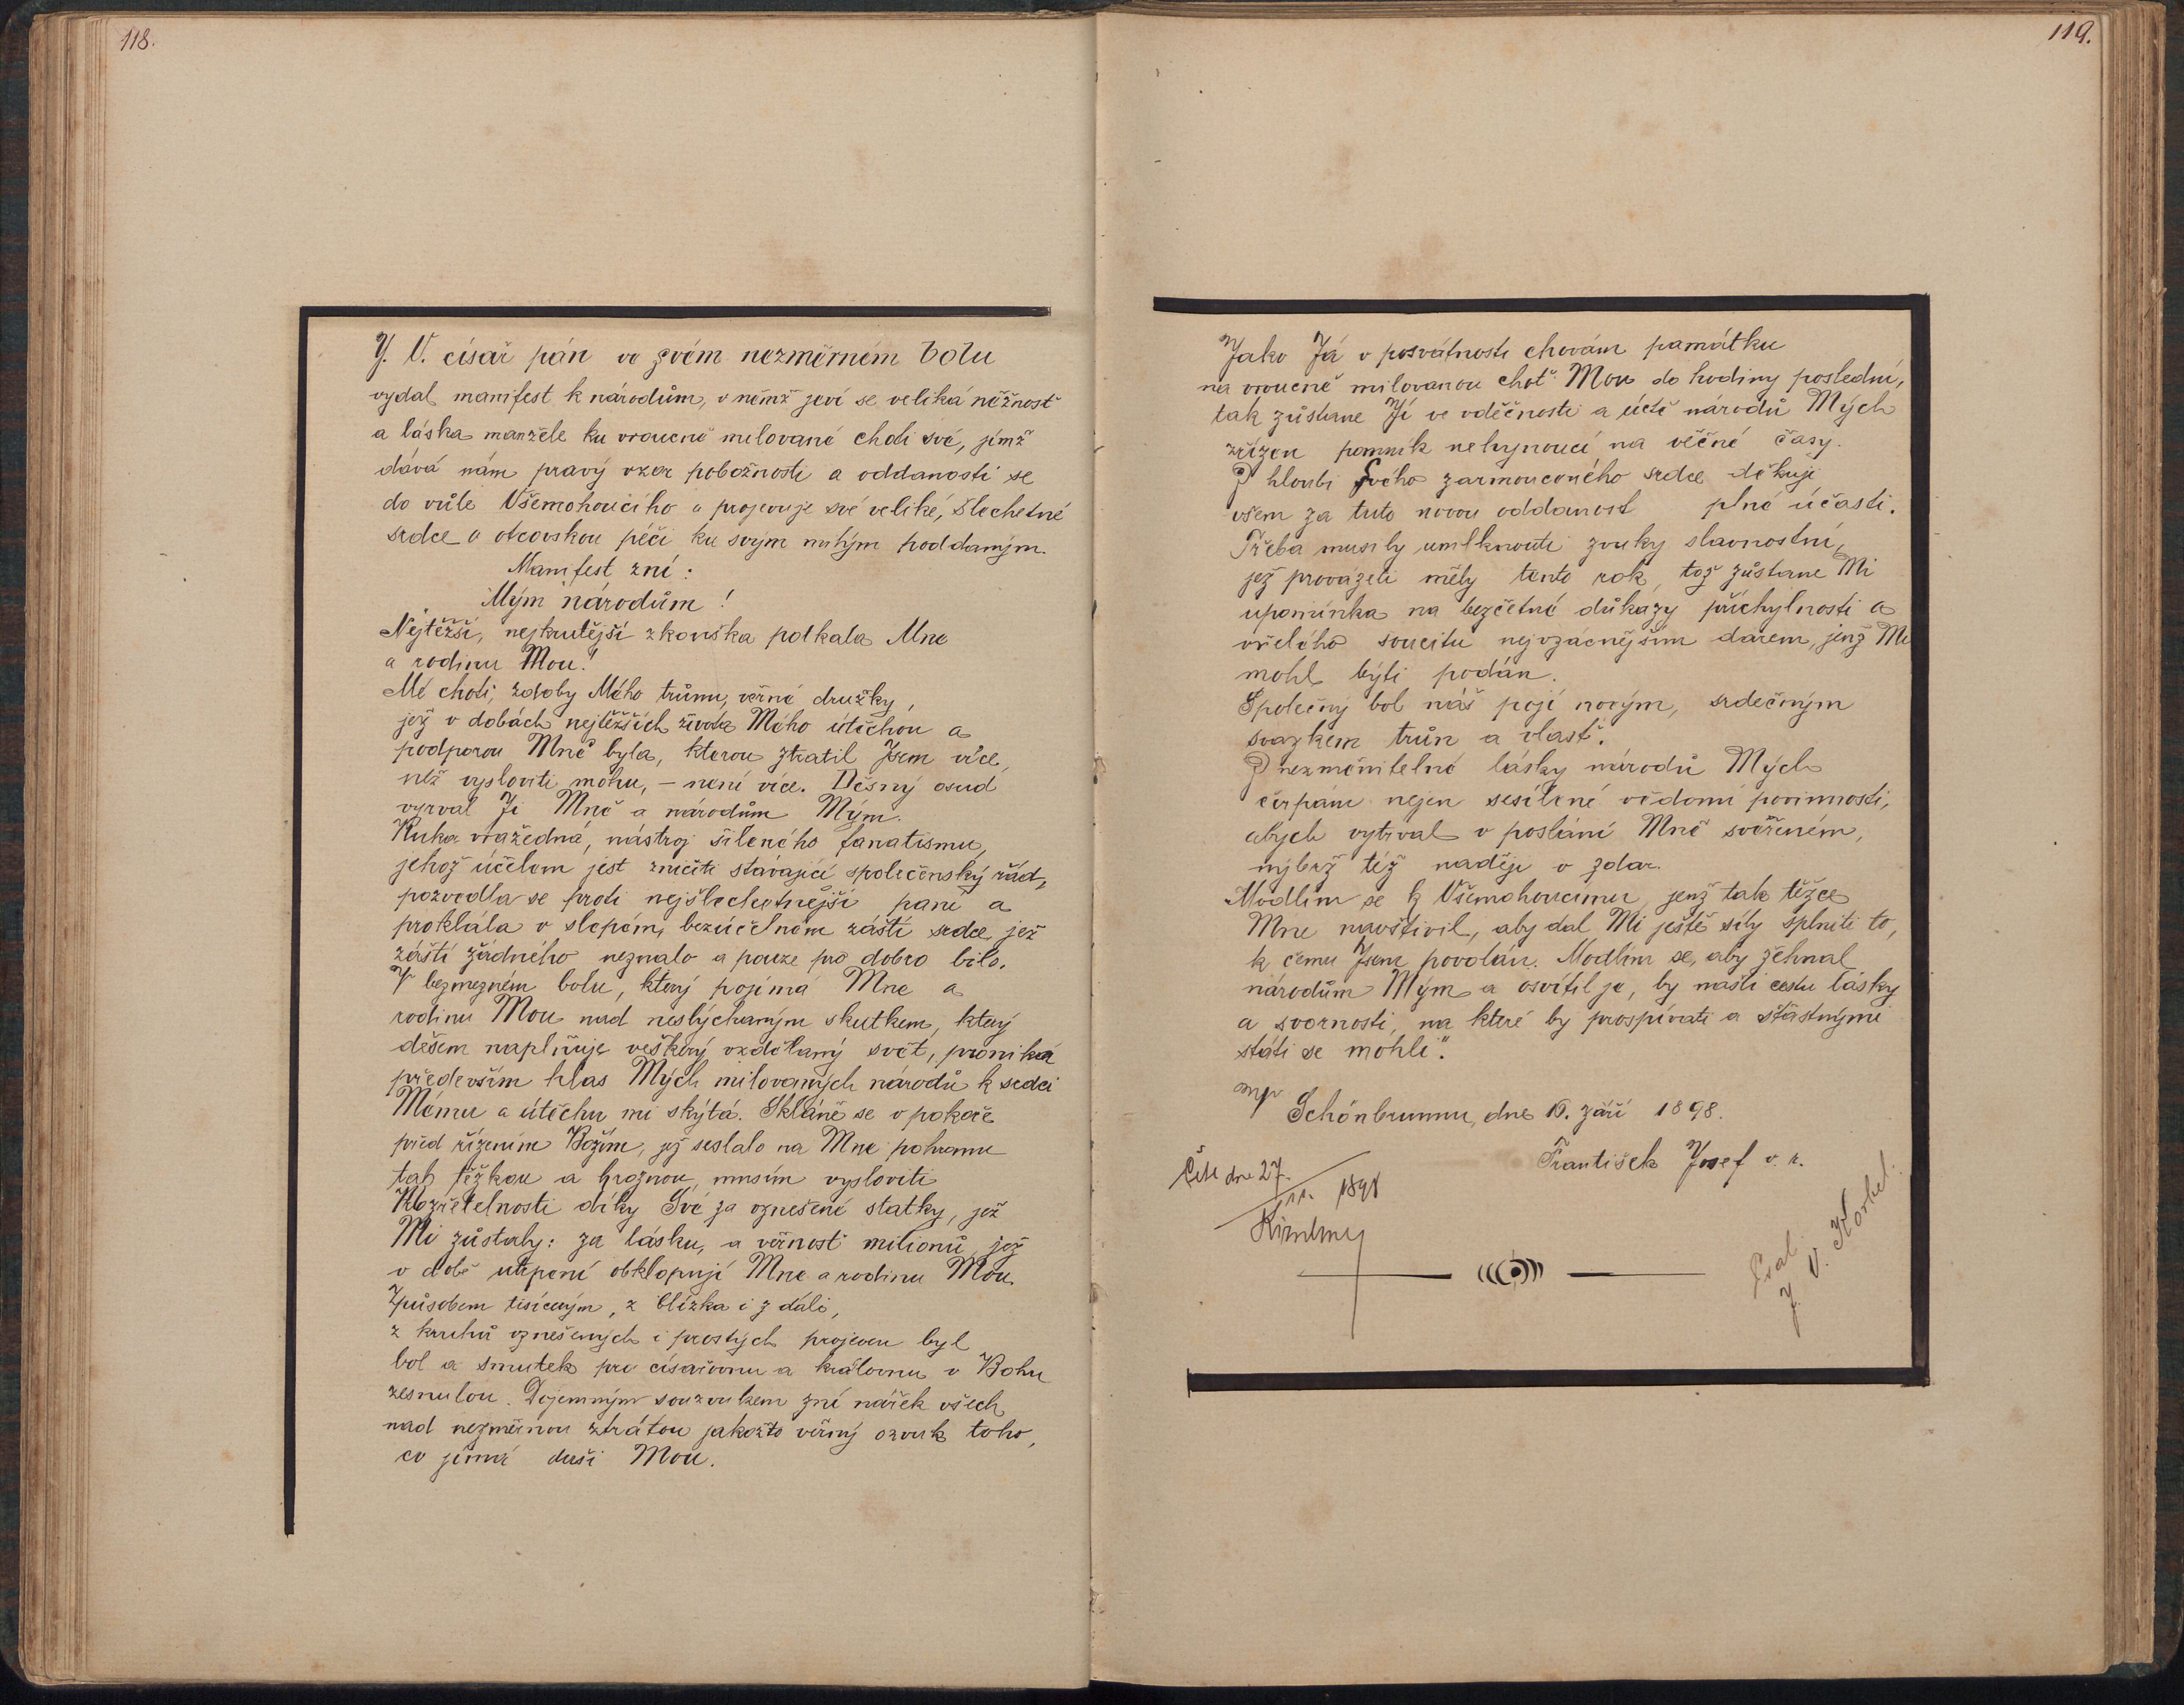 118.
J. V. císař pán ve svém nezměrném bolu
vydal manifest k národům, v němž jeví se veliká něžnosť
a láska manžele ku vroucně milované choti své, jímž
dává nám pravý vzor pobožnosti a oddanosti se
do vůle Všemohoucího a projevuje své veliké, šlechetné
srdce a otcovskou péči ku svým milým poddaným.
Manifest zní:
Mým národům!
Nejtěžší, nejkrutější zkouška potkala Mne
a rodinu Mou!
Mé choti, zdoby Mého trůnu, věrné družky,
jež v dobách nejtěžších života Mého útěchou a
podporou Mně byla, kterou ztratil Jsem více,
než vysloviti mohu, – není více. Děsný osud
vyrval Ji Mně a národům Mým.
Ruka vražedná, nástroj šíleného fanatismu,
jehož účelem jest zničiti stávající společenský řád,
pozvedla se proti nejšlechetnější paní a
proklála v slepém, bezúčelném záští srdce, jež
záští žádného neznalo a pouze pro dobro bilo.
V bezmezném bolu, který pojímá Mne a
rodinu Mou nad neslýchaným skutkem, který
děsem naplňuje veškerý vzdělaný svět, proniká
především hlas Mých milovaných národů k srdci
Mému a útěchu mi skýtá. Skláně se v pokoře
před řízením Božím, jež seslalo na Mne pohromu
tak těžkou a hroznou, musím vysloviti
Prozřetelnosti díky Své za vznešené statky, jež
Mi zůstaly: za lásku, a věrnosť milionů, jež
v době utrpení obklopují Mne a rodinu Mou.
Způsobem tisícerým, z blízka i z dáli,
z kruhů vznešených i prostých projeven byl
bol a smutek pro císařovnu a královnu v Bohu
zesnulou. Dojemným souzvukem zní nářek všech
nad nezměrnou ztrátou jakožto věrný ozvuk toho,
co jímá duši Mou.
119.
Jako Já v posvátnosti chovám památku
na vroucně milovanou choť Mou do hodiny poslední,
tak zůstane Jí ve vděčnosti a úctě národů Mých
zřízen pomník nehynoucí na věčné časy.
Z hloubi Svého zarmouceného srdce děkuji
všem za tuto novou oddanost plné účasti.
Třeba musily umlknouti zvuky slavnostní,
jež provázeti měly tento rok, tož zůstane Mi
upomínka na bezčetné důkazy příchylnosti a
vřelého soucitu nejvzácnějším darem, jenž Mi
mohl býti podán.
Společný bol náš pojí novým, srdečným
svazkem trůn a vlasť.
Z nezměnitelné lásky národů Mých
čerpám nejen sesílené vědomí povinnosti,
abych vytrval v poslání Mně svěřeném,
nýbrž též naději v zdar.
Modlím se k Všemohoucímu, jenž tak těžce
Mne navštívil, aby dal Mi ještě síly splniti to,
k čemu Jsem povolán. Modlím se, aby žehnal
národům Mým a osvítil je, by našli cestu lásky
a svornosti, na které by prospívati a šťastnými
státi se mohli".
Schönbrunnu, dne 16. září 1898.
František Josef v. r.
27
1898
Psal
J. V.